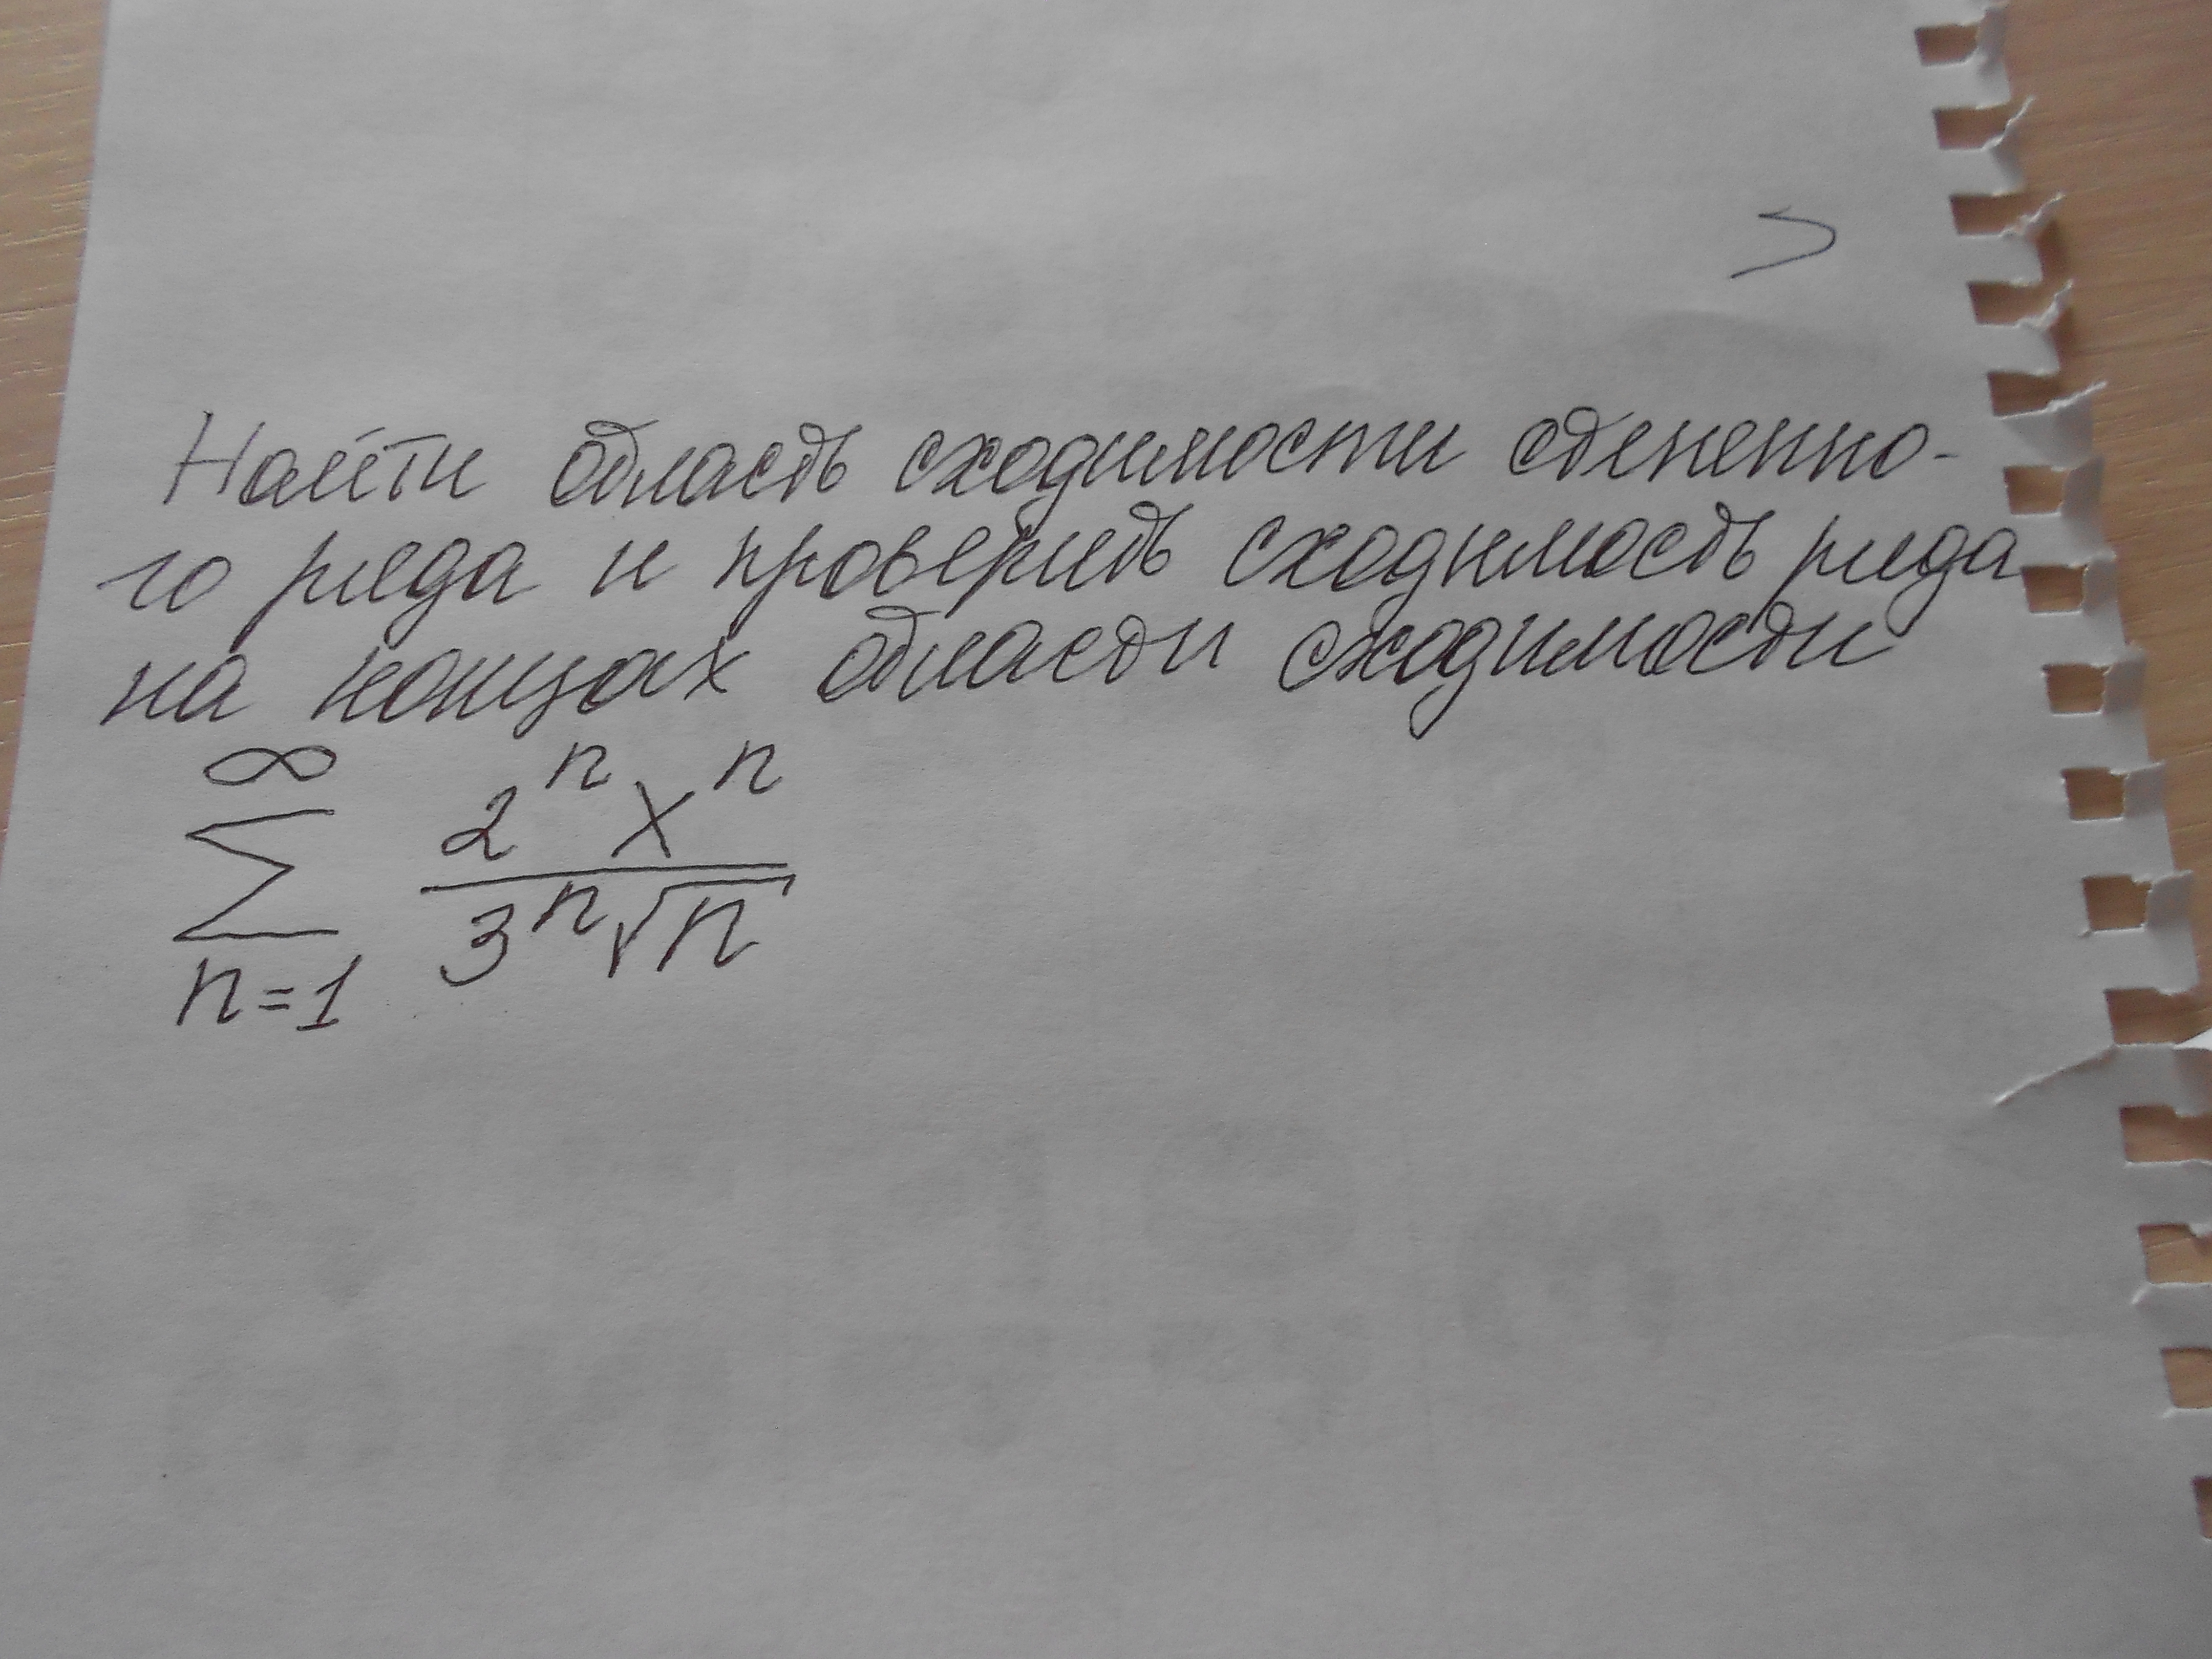 Найти область сходимости степенно-
го ряда и проверить сходимость ряда
на концах области сходимости
∞
∑ 2ⁿxⁿ / 3ⁿ√n
n=1